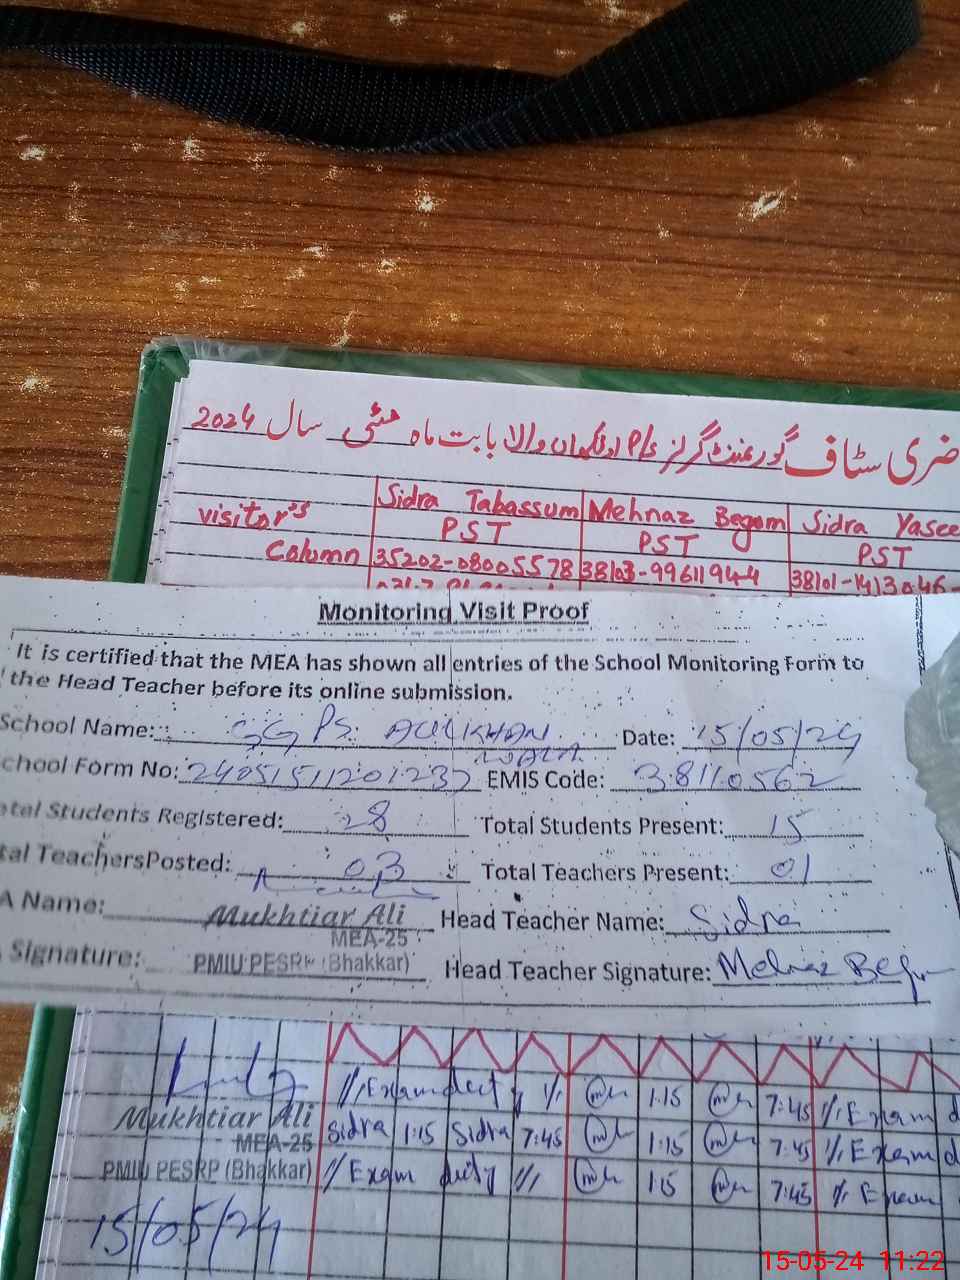 ضری سٹاف گورنمنٹ گرلز P/S اولکھاں والا بابت ماہ مئی سال 2024
visitor's Column
Sidra Tabassum PST 35202-08005578
Mehnaz Begom PST 38103-99611944
Sidra Yasee PST 38101-1413046-
Monitoring Visit Proof
It is certified that the MEA has shown all entries of the School Monitoring Form to
the Head Teacher before its online submission.
School Name: GGPS AULKHAN WALA Date: 15/05/24
chool Form No: 2405151120123 EMIS Code: 38110562
otal Students Registered: 28 Total Students Present: 15
tal TeachersPosted: 03 Total Teachers Present: 01
A Name: Mukhtiar Ali Head Teacher Name: Sidra
MEA-25
Signature: PMIU PESRP (Bhakkar) Head Teacher Signature: Mehnaz Begum
// Exam duty // 1:15 7:45 // Exam d
Mukhtiar Ali
MEA-25
Sidra 1:15 Sidra 7:45 1:15 7:45 // Exam d
PMIU PESRP (Bhakkar)
// Exam duty // 1:15 7:45 // Exam
15/05/24
15-05-24 11:22